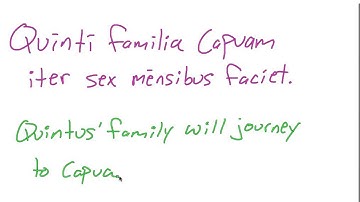 Quintī familia Capuam
iter sex mēnsibus faciet.
Quintus' family will journey
to Capua